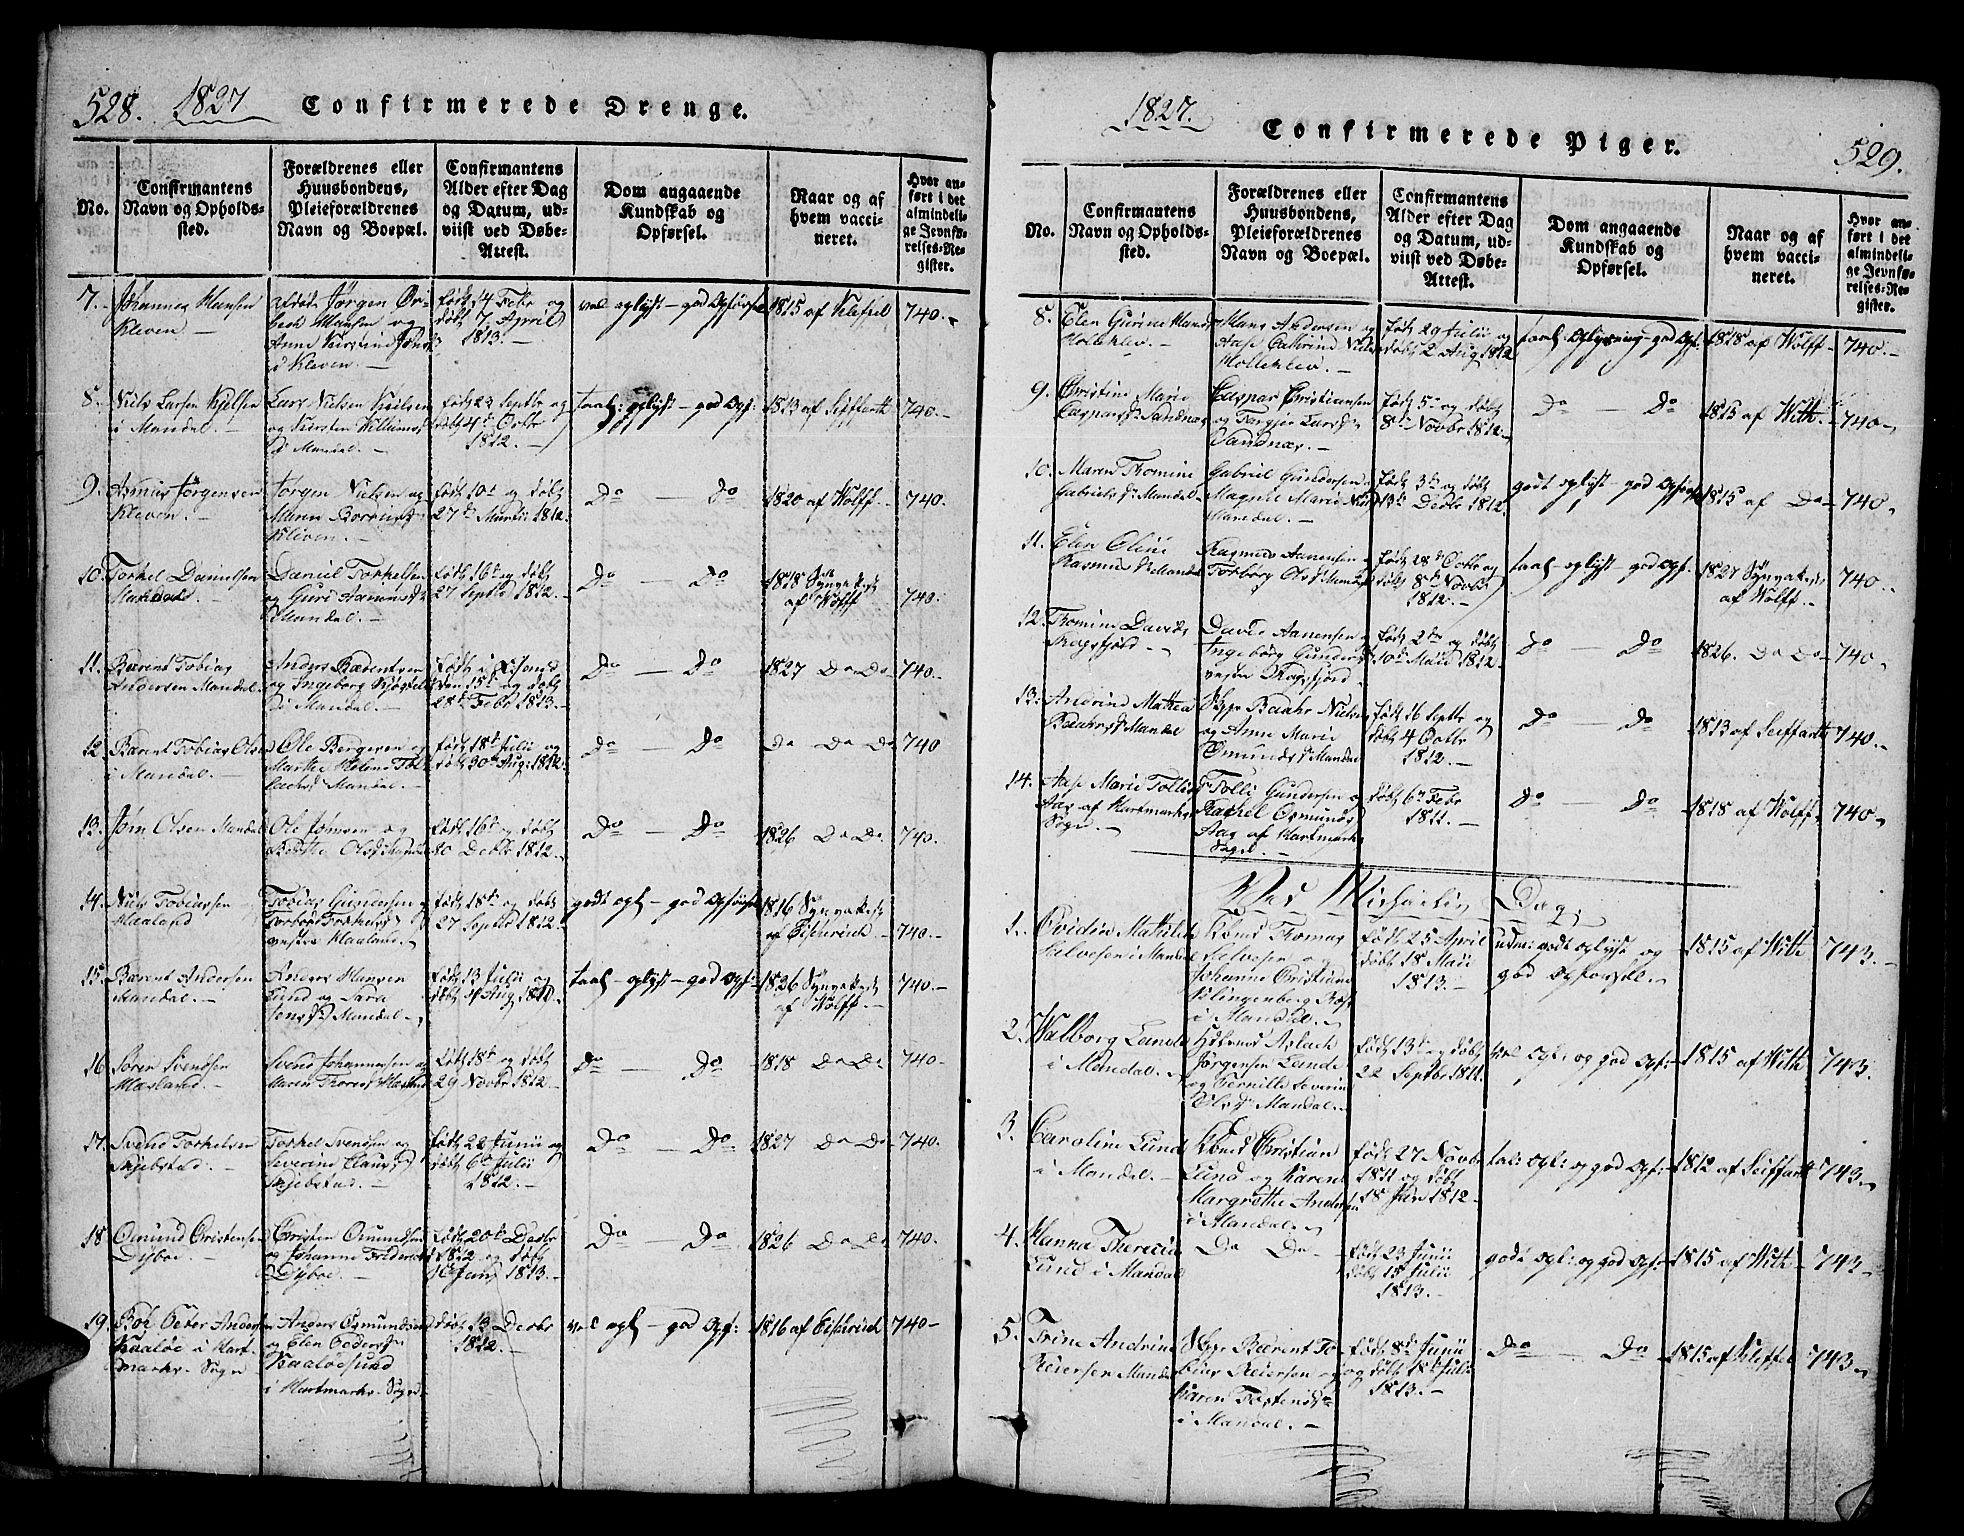 528. 1827 Confirmerede Drenge.
No.
Confirmantens
Navn og Opholds-
sted.
Forældrenes eller
Huusbondens,
Pleieforældrenes
Navn og Boepæl.
Confirmantens
Alder efter Dag
og Datum, ud-
viist ved Døbe-
Attest.
Dom angaaende
Kundskab og
Opførsel.
Naar og af
hvem vacci-
neret.
Hvor an-
ført i det
almindeli-
ge Jevnfø-
relses-Re-
gister.
7. Johannes Hansen
Kleven.
afdøde Jørgen
Hansen og
Anne Kirstine
i Kleven.
født 14 Febr og
døbt 7 April
1813.
vel oplyst god Opførsel
1815 af Kleffel
740.
8. Niels Larsen Kjelsen
i Mandal.
Lars Nielsen Kjelsen
og Kirsten Willums
Mandal.
født 23 Septbr og
døbt 4de Octbr
1812.
taal: oplyst god Opf:
1813 af Seiffarth
740.
9. Asmus Jørgensen
Kleven.
Jørgen Nielsen og
Maren
Kleven
født 10de og døbt
27de Martii 1812.
Do Do
1820 af Wolff
740.
10. Torkel Danielsen
Mandal.
Daniel Torkelsen
og Guri Aanensd
Mandal.
født 16de og døbt
27 Septbr 1812.
Do Do
1818
af Wolff
740.
11. Bærent Tobias
Andersen Mandal
Anders Bærentsen
og Ingeborg
i Mandal.
født i
den 15de og døbt
28de Febr 1813.
Do Do
1827 Do Do
740.
12. Bærent Tobias Olsen
i Mandal.
Ole Bergersen og
Marthe Helene
Mandal.
født 18de Julii og
døbt 30te Aug: 1812.
Do Do
Do Do Do
740
13. Jørn Olsen Mandal
Ole Johnsen og
Berthe Olsd
født 16de og døbt
Decbr 1812.
Do Do
1826 Do Do
740.
14. Niels Tobiassen
Haaland
Tobias Gundersen
Torborg Torkelsd
vestre Haaland.
født 18de og døbt
27 Septbr 1812.
godt opl god Opførsel
1816
af
740.
15. Bærent Andersen
Mandal.
Anders Hansen
Lund og Sara
Mandal.
født 13 Julii og
døbt Aug
taal oplyst god Opf:
1826
af Wolff
740.
16 Søren Svendsen
Haaland.
Svend Johannesen og
Maren
født 18de og døbt
29 Novbr 1812.
Do Do
1818 Do Do
740.
17. Svend Torkelsen
Skjebstad.
Torkel Svendsen og
Severine Clausd
Skjebstad.
født 22 Junii og
døbt 6te Julii
1812.
Do Do
1827 Do Do
740.
18 Omund Christensen
Dyboe.
Christen Omundsen
og Johanne
Dyboe.
født 20de Decbr
1812 og døbt
Jan 1813.
Do Do
1826 Do Do
740.
19. Boe Peder Andersen
i Hart-
marks Sogn
Anders Osmundsen
og Elen Pedersd
i Hartmarks Sogn
døbt 13 Decbr
1812.
vel opl god Opf:
1816 af
740
1827. Confirmerede Piger. 529.
No.
Confirmantens
Navn og Opholds-
sted.
Forældrenes eller
Huusbondens,
Pleieforældrenes
Navn og Boepæl.
Confirmantens
Alder efter Dag
og Datum, ud-
viist ved Døbe-
Attest.
Dom angaaende
Kundskab og
Opførsel.
Naar og af
hvem vacci-
neret.
Hvor an-
ført i det
almindeli-
ge Jevnfø-
relses-Re-
gister.
8. Elen Gurine
Holleklev.
Hans Andersen og
Aase Cathrine
Holleklev.
født 29 Julii og
døbt 2 Aug 1812
taal: Oplysning god Opf:
1818 af Wolff
740.
9. Christine Marie
Caspersd Sandnæs
Caspar Christiansen
og Torgjer Larsd
Sandnæs.
født 5te og døbt
8de Novbr 1812.
Do Do
1815 af With.
740
10. Maren Thomine
Gabrielsd Mandal
Gabriel Gundersen
Magnil Marie
Mandal.
født 3de og døbt
13de Decbr 1812.
godt oplyst god Opførsel
1815 af Do
740
11. Elen Oline
Rasmusd Mandal
Rasmus Aanensen og
Torborg Olsd Mandal
født 28de Octbr og
døbt 8de Novbr
1812.
taal oplyst god Opf.
1827
af Wolff.
740
12. Thomine Davids
David Aanensen
Ingeborg Gundersd
vestre
født 2den og døbt
10de Maii 1812.
Do Do
1826. Do Do
740
13. Andrine Mathea
Baahrsd Mandal
Skpr Baahr Nielsen
og Anne Marie
Omundsd Mandal
født 16 Septbr og
døbt 4 Octbr
1812.
Do Do
1813 af Seiffarth
740.
14. Aase Marie
Aas af Hartmarks
Sogn.
Gundersen
Rachel Osmunds
Aas af Hartmarks
Sogn.
døbt 6te Febr
1811.
Do Do
1818 af Wolff
740
Ved Michaelis Dag,
1. Ovidia Mathilde
Salvesen i Mandal
Kbmd Thomas
Salvesen og
Johanne Christiane
Klingenberg
i Mandal.
født 25 April
døbt 18 Maii
1813.
udm: godt oplyst og
god Opførsel.
1815 af With
743.
2. Walborg Lande
i Mandal.
Aslach
Jørgensen Lande
og Pernille Severine
Mandal.
født 13de og døbt
22 Septbr 1811.
vel opl: og god Opf:
1815 af With
743.
3. Caroline Lund
i Mandal.
Kbmd Christian
Lund og Karen
Margrethe Andersen
i Mandal.
født 27 Novbr
1811 og døbt
18 Jan 1812.
tal: opl: og god Opf:
1812 af Seiffarth
743.
4. Hanna Theresia
Lund i Mandal
Do Do
født 23 Junii
døbt 15 Julii
1813.
godt opl: og god Opf:
1815 af With
743.
5. Trine Andrine
Reiersen Mandal
Skpr Bærent To-
bias Reiersen og
Karen Tostensd
i Mandal.
født 8de Junii
og døbt 18de Julii
1813.
Do Do
1815 af Kleffel
743.